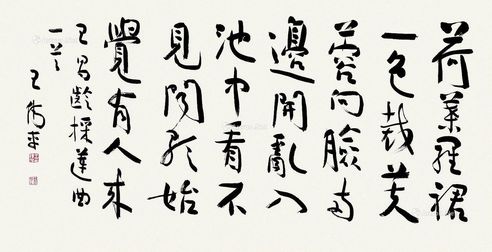 荷葉羅裙
一色裁芙
蓉向臉兩
邊開亂入
池中看不
見聞歌始
覺有人來
王昌齡採蓮曲
一首
王衛平